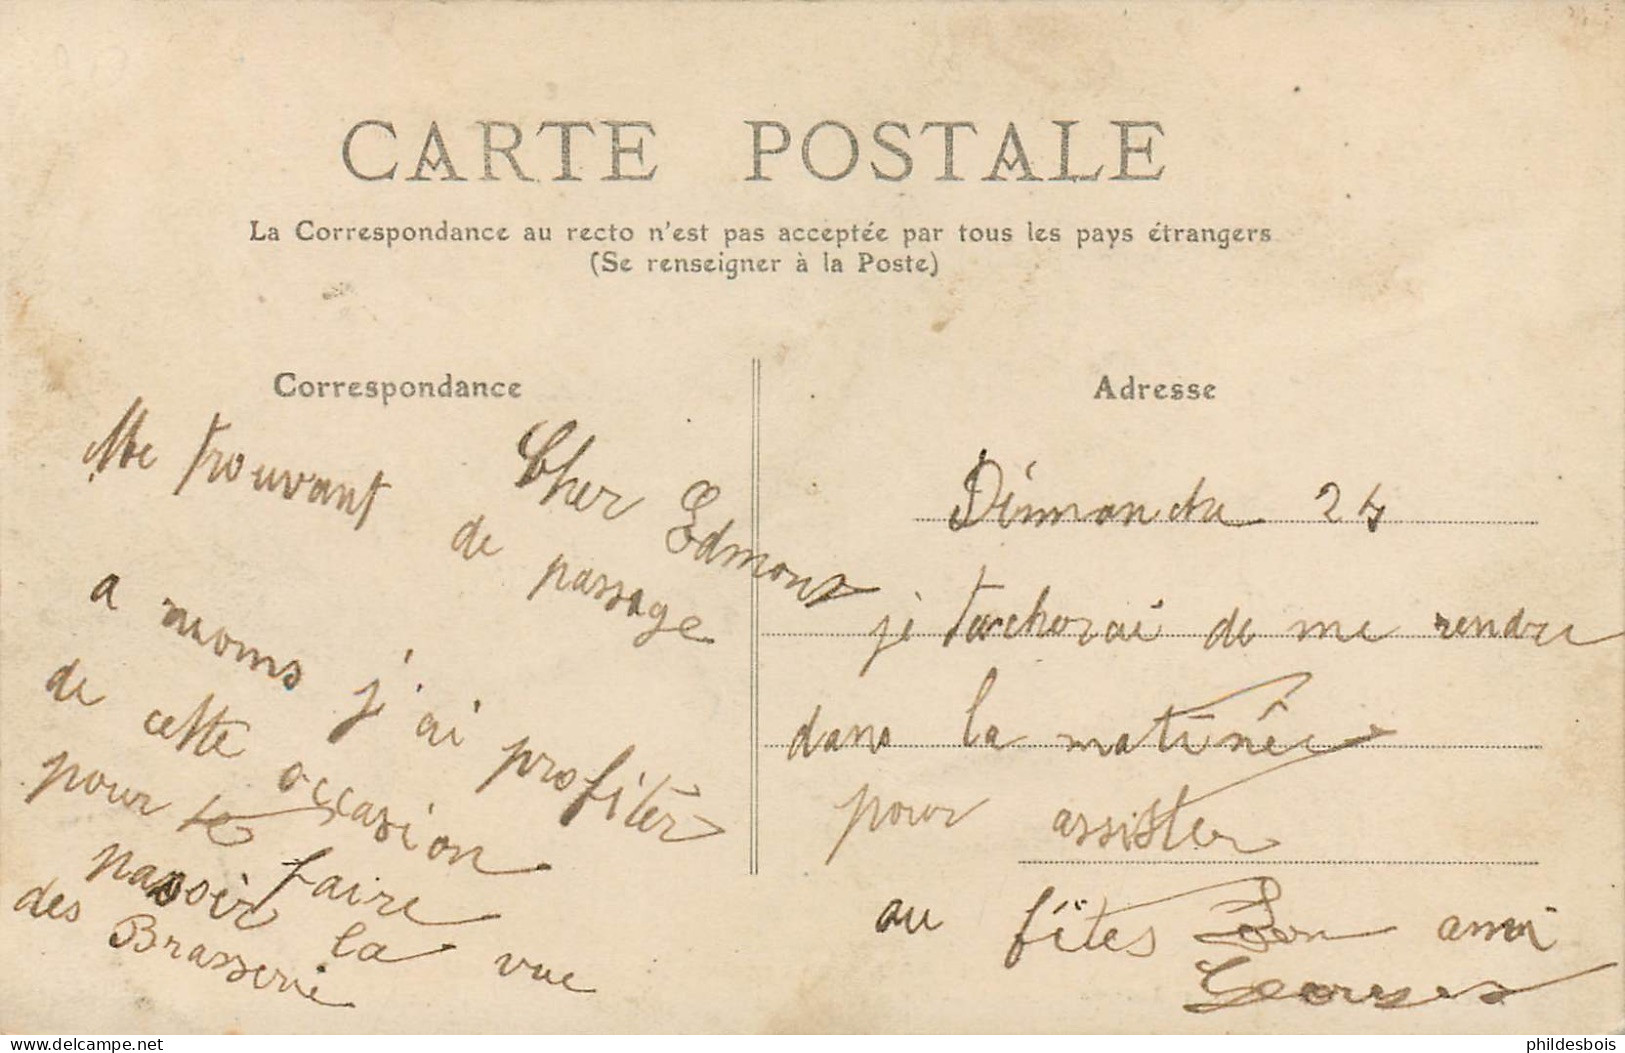 CARTE POSTALE
La Correspondance au recto n'est pas acceptée par tous les pays étrangers
(Se renseigner à la Poste)
Correspondance
Cher Edmond
Me trouvant de passage
a moms j'ai profiter
de cette occasion
pour te faire
la vue
des Brasserie
Adresse
Dimanche 24
je tacherai de me rendre
dans la matinée
pour assister
au fêtes Ton ami
Georges
delcampe.net
phildesbois